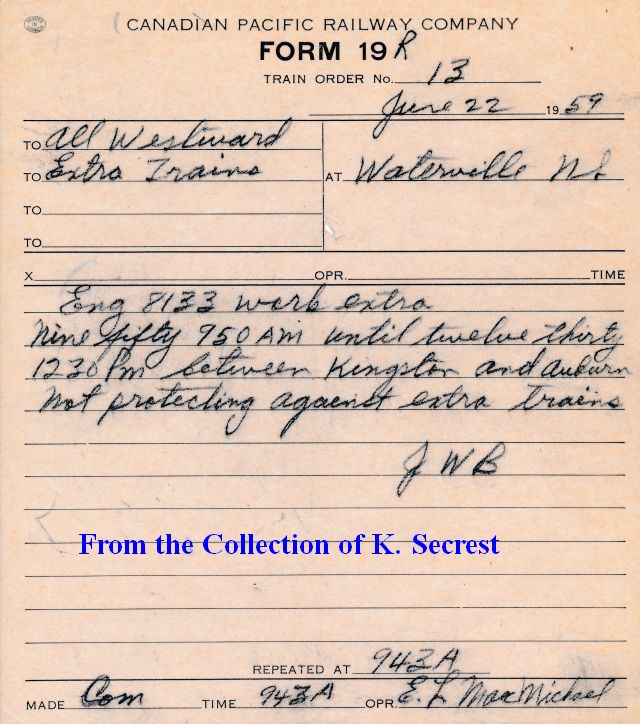 CANADIAN PACIFIC RAILWAY COMPANY
FORM 19 R
TRAIN ORDER No. 13
June 22 1959
TO All Westward
TO Extra Trains
AT Waterville NS
TO
TO
X OPR. TIME
Eng 8133 work extra
Nine fifty 950 AM until twelve thirty
1230 PM between Kingston and Auburn
not protecting against extra trains
J W B
From the Collection of K. Secrest
REPEATED AT 943A
MADE Com TIME 943A OPR. E. L MacMichael